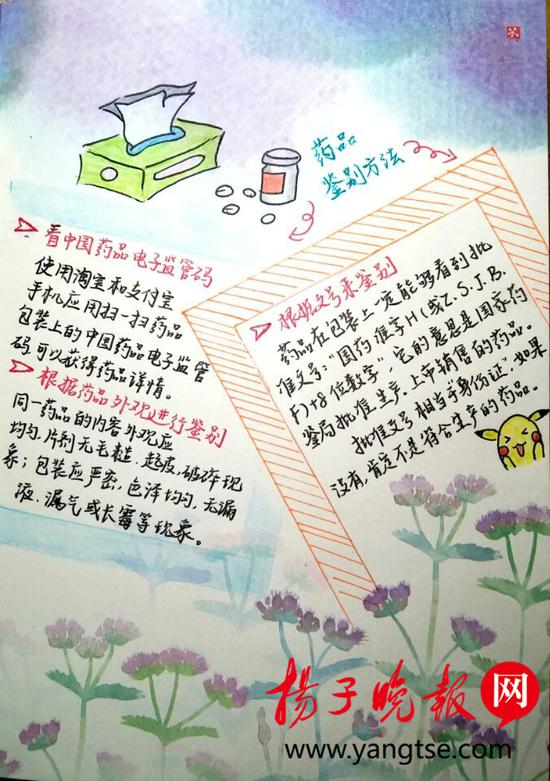 药品
鉴别方法
看中国药品电子监管码
使用淘宝和支付宝
手机应用扫一扫药品
包装上的中国药品电子监管
码可以获得药品详情。
根据药品外观进行鉴别
同一药品的内容外观应
均匀,片剂无毛糙、起皮、破碎现
象;包装应严密,色泽均匀,无漏
液、漏气或长霉等现象。
根据文号来鉴别
药品在包装上一定能够看到批
准文号:“国药准字H(或Z.S.J.B.
F)+8位数字”,它的意思是国家药
监局批准生产、上市销售的药品。
批准文号相当于“身份证”,如果
没有,肯定不是符合生产的药品。
扬子晚报网
www.yangtse.com